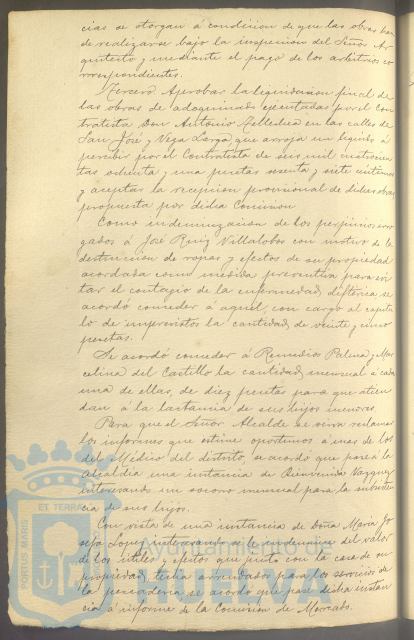 cias se otorgan á condicion de que las obras han
de realizarse bajo la inspeccion del Señor Ar
quitecto y mediante el pago de los arbitrios co
rrespondientes.
Tercero. Aprobar la liquidacion final de
las obras de adoquinado ejecutadas por el con
tratista Don Antonio en las calles de
San José y Vega Larga que arroja un liquido á
percibir por el Contratista de seis mil
tas ochenta y una pesetas sesenta y siete centimos
y aceptar la recepcion provisional de dichas obras
propuesta por dicha Comision
Como indemnizacion de los perjuicios irro
gados á José Ruiz Villalobos con motivo de la
destruccion de ropas y efectos de su propiedad
acordada como medida preventiva para evi
tar el contagio de la enfermedad diftérica se
acordó conceder á aquel, con cargo al capitu
lo de imprevistos la cantidad de veinte y cinco
pesetas.
Se acordó conceder á Remedios Palma y Mar
celina del Castillo la cantidad mensual á cada
una de ellas, de diez pesetas para que atien
dan á la lactancia de sus hijos menores
Para que el Señor Alcalde se sirva reclamar
los informes que estime oportunos á mas de los
del Médico del distrito, se acordó que pase á la
Alcaldia una instancia de Bienvenida Vazquez
interesando un socorro mensual para la subsisten
cia de sus hijos.
Con vista de una instancia de Doña Maria Jo
sefa Lopez interesando se le indemnice del valor
de los útiles y efectos que junto con la casa de su
propiedad, tenia arrendados para los servicios de
la pescaderia se acordó que pase dicha instan
cia á informe de la Comision de Mercado.
PORTUS MARIS
ET TERRAE
Ayuntamiento de
HUELVA